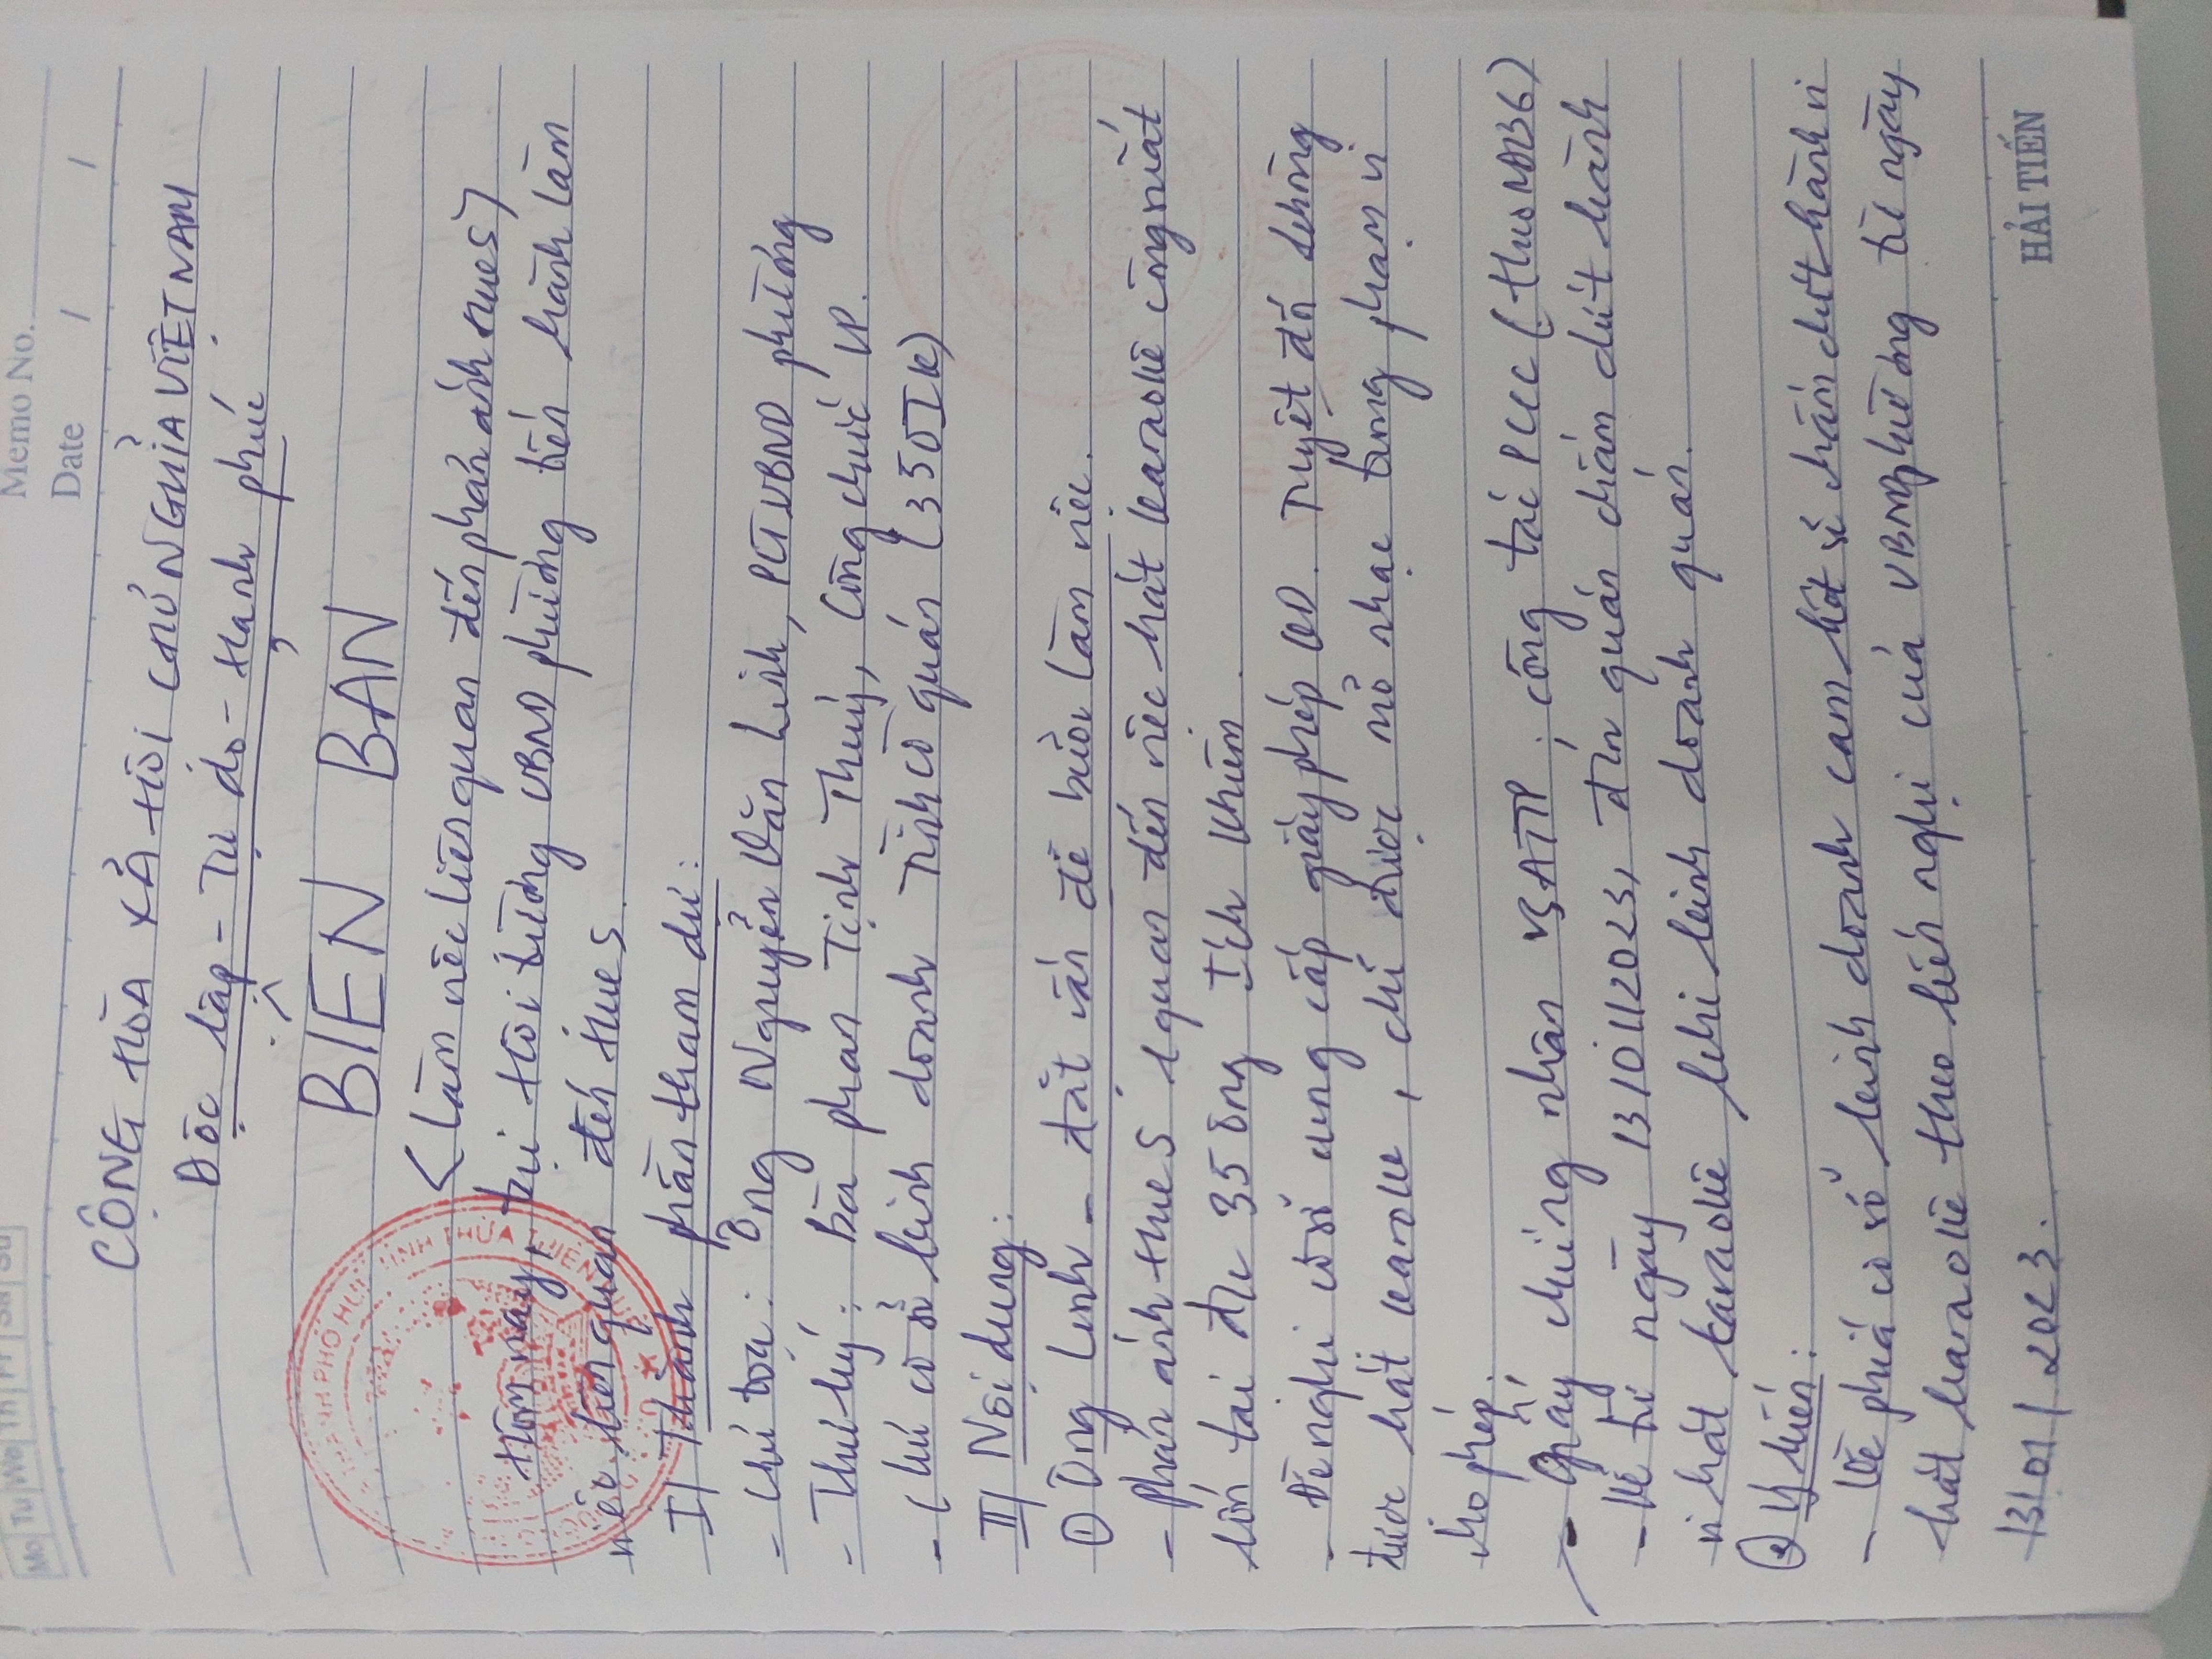 Mo Tu We Th Fr Sa Su
Memo No.
Date / /
CỘNG HÒA XÃ HỘI CHỦ NGHĨA VIỆT NAM
Độc lập - Tự do - Hạnh phúc
BIÊN BẢN
(Làm việc liên quan đến phản ánh HueS)
Hôm nay, tại Hội trường UBND phường tiến hành làm
việc liên quan đến HueS.
I/ Thành phần tham dự:
- Chủ tọa: Ông Nguyễn Văn Linh, PCT UBND phường
- Thư ký: Bà Phan Tịnh Thủy, Công chức VP.
- Chủ cơ sở kinh doanh Tình cờ quán (35 ÔIK)
II/ Nội dung:
① Ông Linh - đặt vấn đề buổi làm việc.
- Phản ánh HueS quan đến việc hát karaoke công suất
lớn tại đc 35 Ông Ích Khiêm.
- Đề nghị cơ sở cung cấp giấy phép KD. Tuyệt đối không
được hát karoke, chỉ được mở nhạc trong phạm vi
cho phép.
- Giấy chứng nhận VSATTP; công tác PCCC (theo NĐ136)
- Kể từ ngày 13/01/2023, đn quán chấm dứt hành
vi hát karaoke khi kinh doanh quán.
② Ý kiến:
- Về phía cơ sở kinh doanh cam kết sẽ chấm dứt hành vi
hát karaoke theo kiến nghị của UBND phường từ ngày
13/01/2023.
HẢI TIẾN